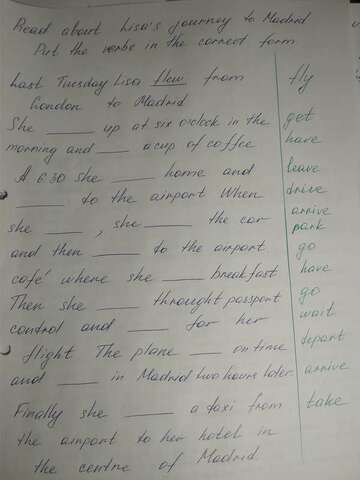 Read about Lisa's journey to Madrid
Put the verbs in the correct form
Last Tuesday Lisa flew from fly
London to Madrid
She ____ up at six o'clock in the get
morning and ____ a cup of coffee have
A 6:30 she ____ home and leave
____ to the airport When drive
she ____, she ____ the car arrive park
and then ____ to the airport go
café where she ____ breakfast have
Then she ____ throught passport go
control and ____ for her wait
flight The plane ____ on time depart
and ____ in Madrid two hours later arrive
Finally she ____ a taxi from take
the airport to her hotel in
the centre of Madrid